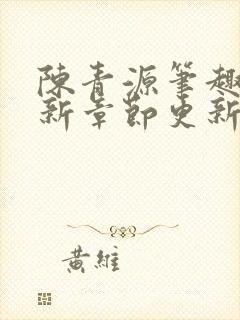 陳青源筆趣
新章節更新
黃維